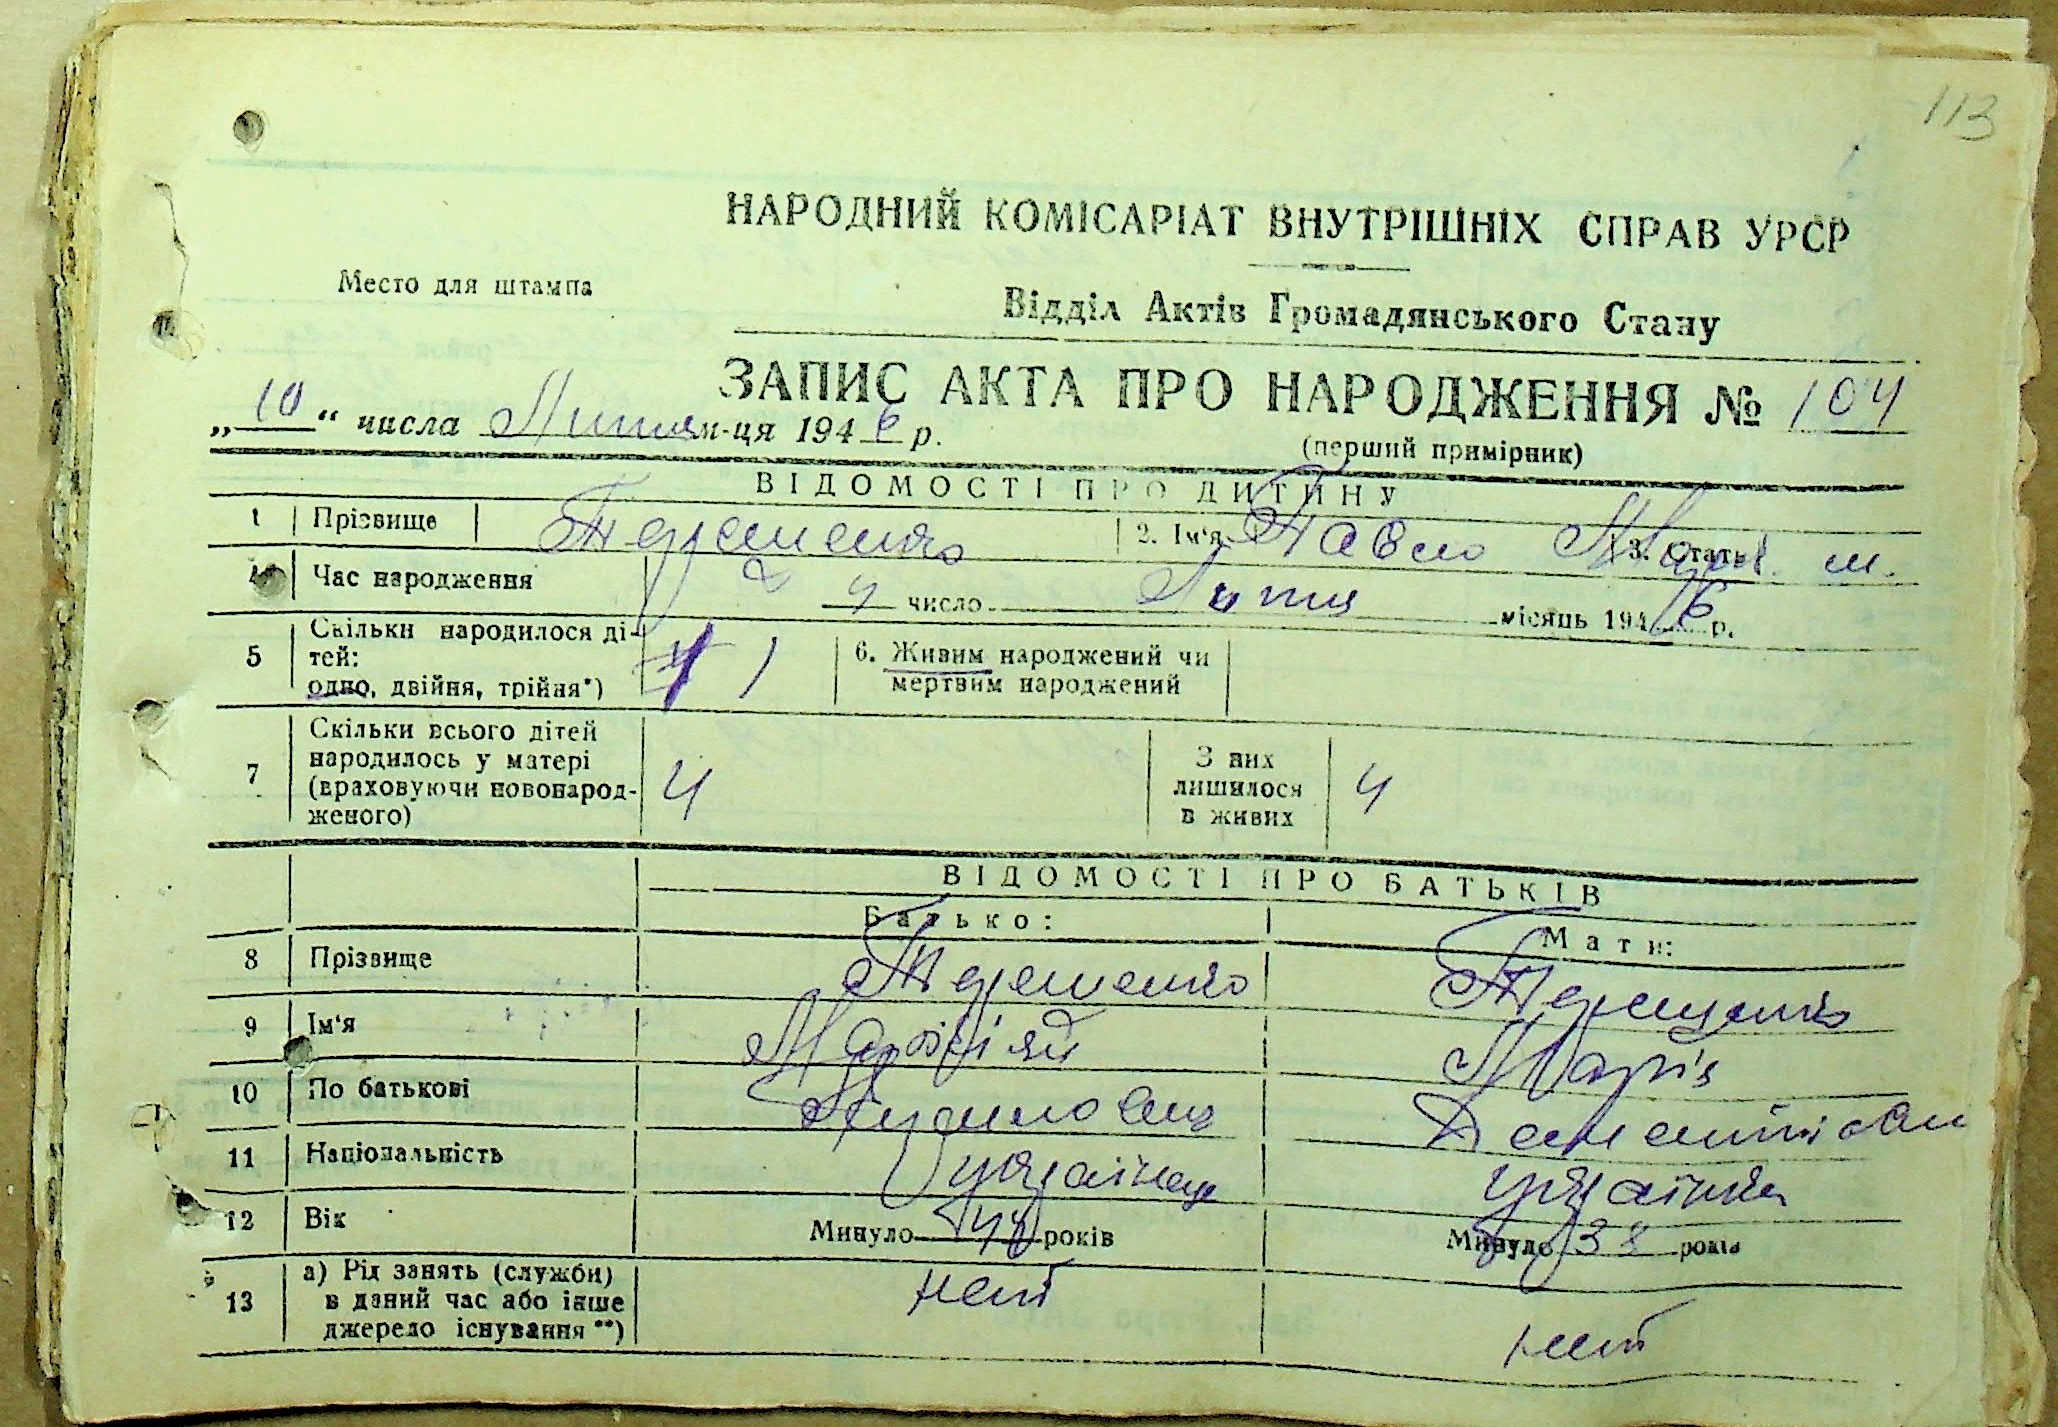 113
НАРОДНИЙ КОМІСАРІАТ ВНУТРІШНІХ СПРАВ УРСР
Место для штампа
Відділ Актів Громадянського Стану
ЗАПИС АКТА ПРО НАРОДЖЕННЯ № 104
„10“ числа Липня м-ця 1946 р.
(перший примірник)
ВІДОМОСТІ ПРО ДИТИНУ
1 Прізвище Терешенко 2. Ім'я Павло 3. Стать м.
Час народження 4 число Липня місяць 1946 р.
5 Скільки народилося ді-
тей:
одно, двійня, трійня*) 1
6. Живим народжений чи
мертвим народжений
7 Скільки всього дітей
народилось у матері
(враховуючи новонарод-
женого) 4
З них
лишилося
в живих 4
ВІДОМОСТІ ПРО БАТЬКІВ
Батько: Мати:
8 Прізвище Терешенко Терещенко
9 Ім'я Марія
10 По батькові
11 Національність українець українка
12 Вік Минуло років Минуло 38 років
13 а) Рід занять (служби)
в даний час або інше
джерело існування**) нет нет